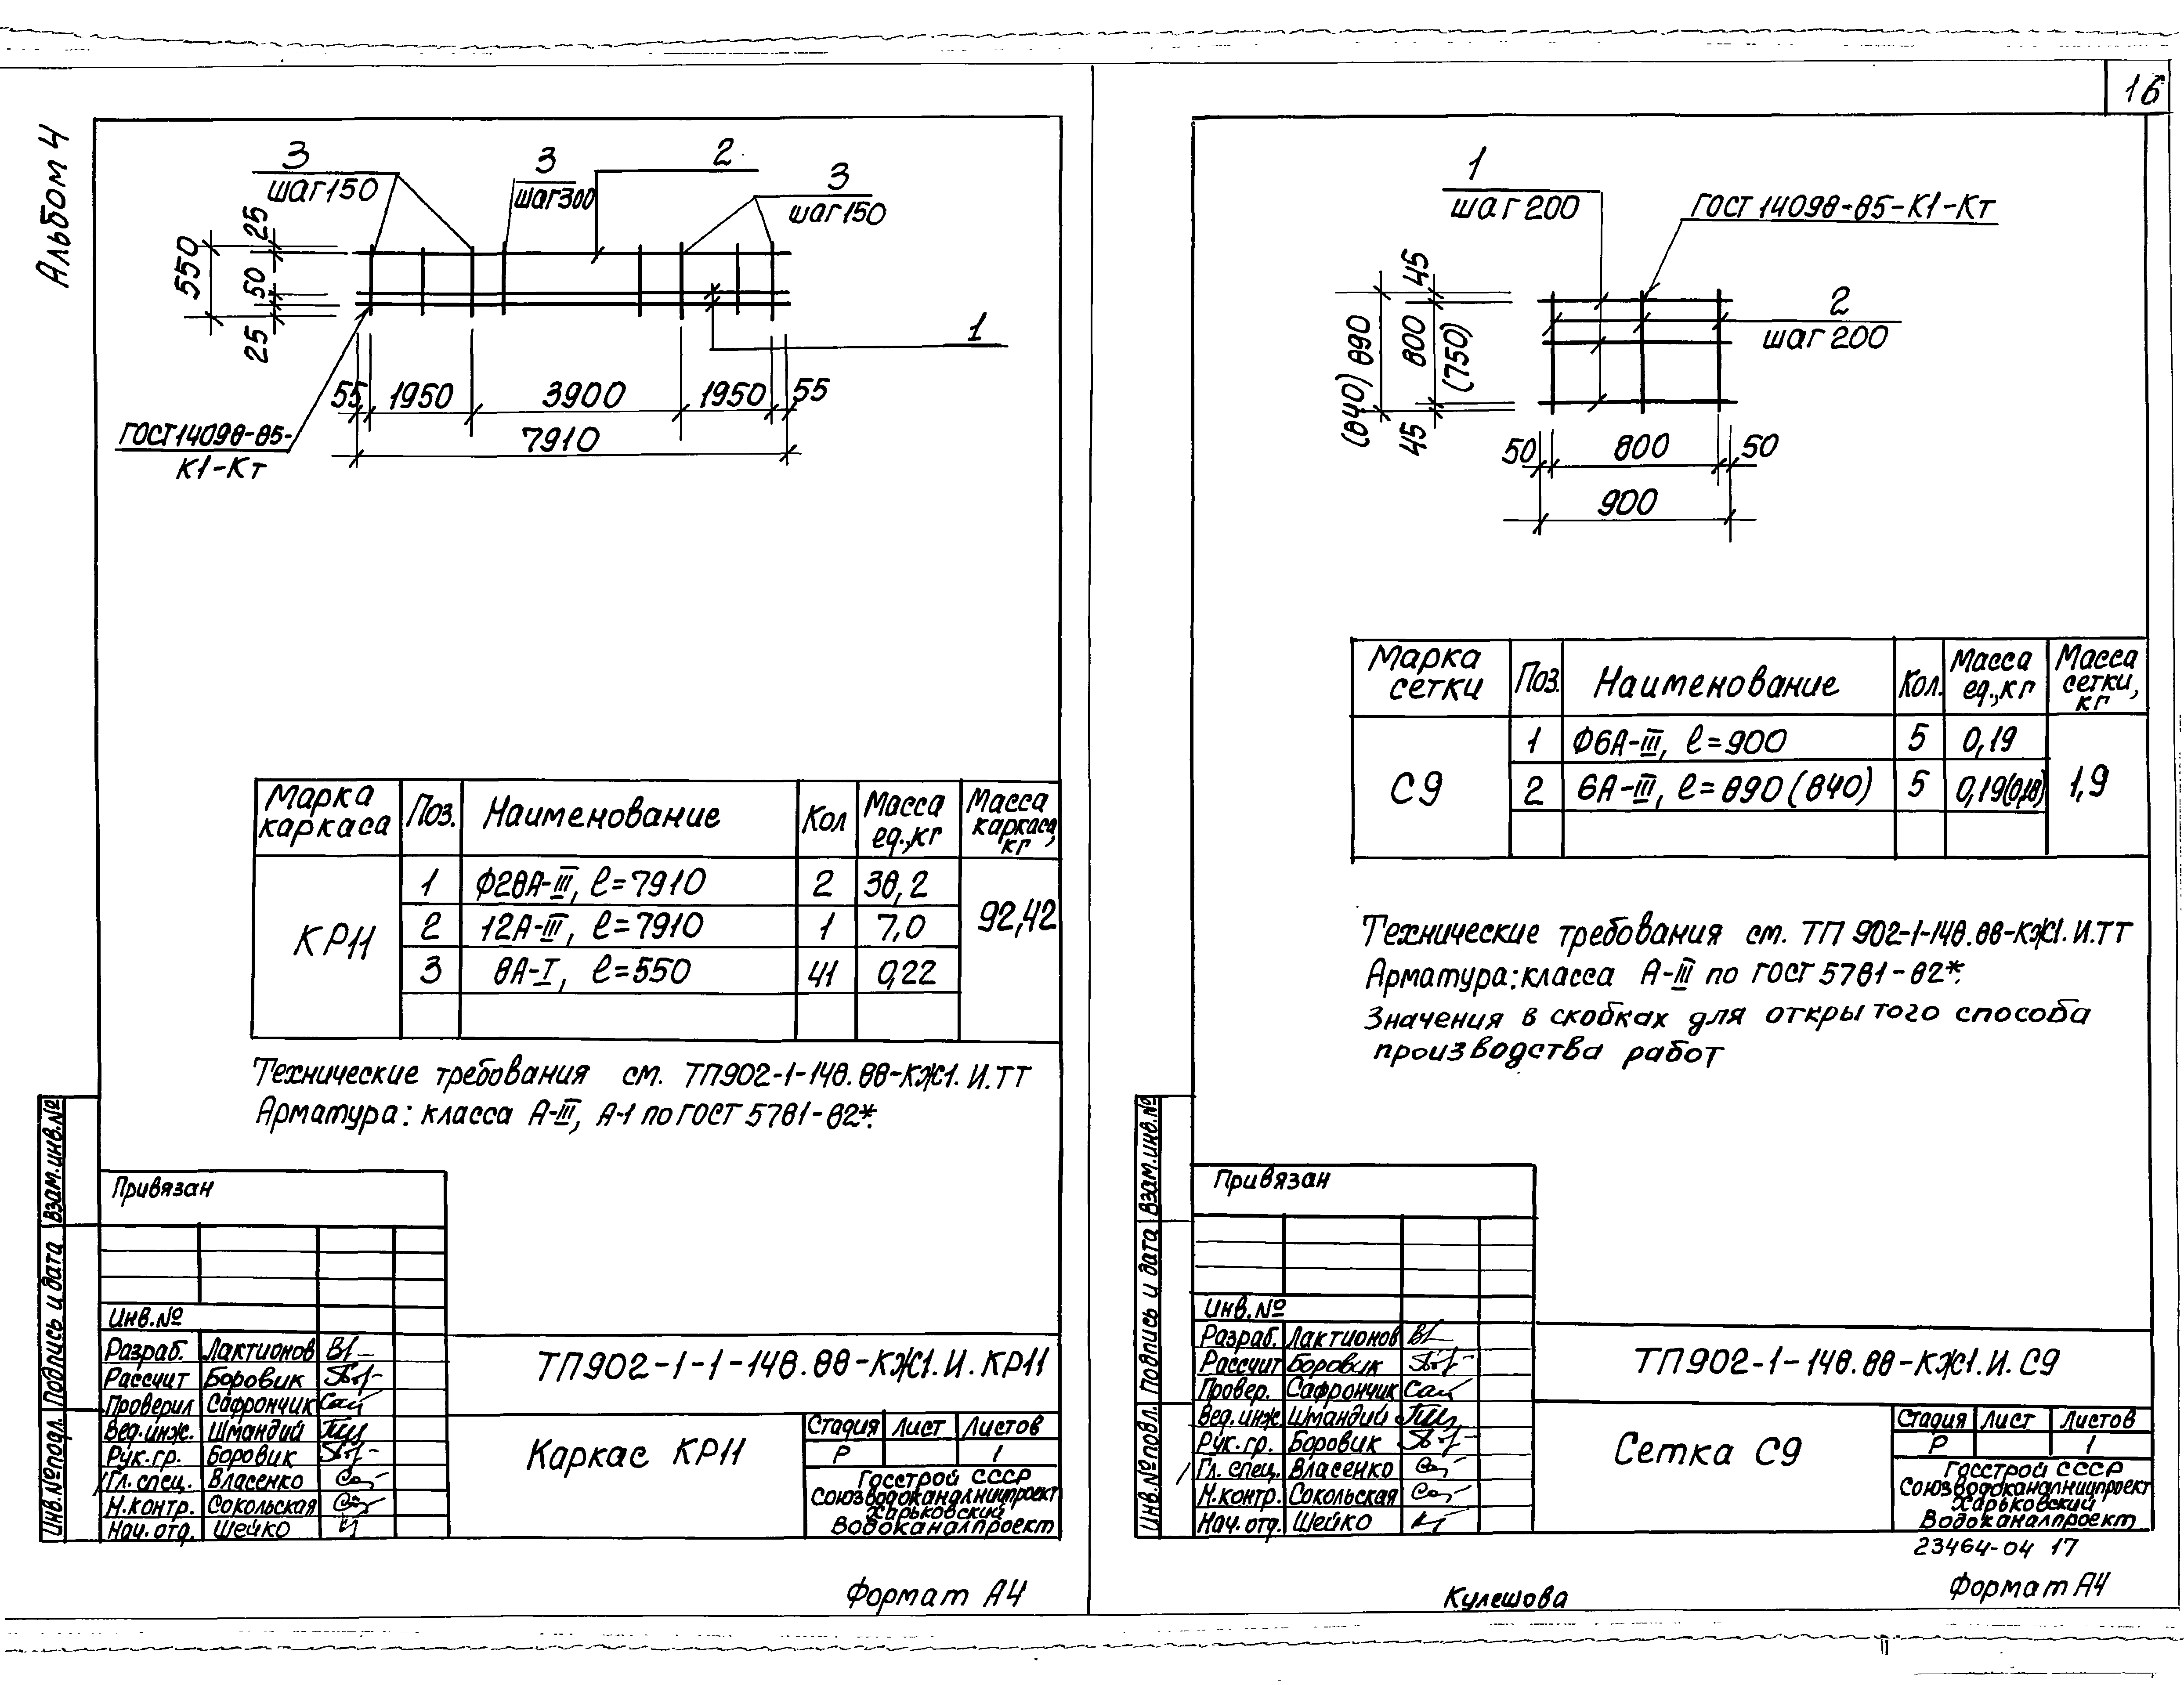 Альбом 4
16
3
шаг150
3
шаг300
2
3
шаг150
550
25
50
25
1
55
1950
3900
1950
55
7910
ГОСТ14098-85-
К1-Кт
Марка каркаса
Поз.
Наименование
Кол
Масса ед.,кг
Масса каркаса, кг
КР11
1 Ф28А-III, ℓ=7910 2 38,2
92,42
2 12А-III, ℓ=7910 1 7,0
3 8А-I, ℓ=550 41 0,22
Технические требования см. ТП902-1-148.88-КЖ1.И.ТТ
Арматура: класса А-III, А-1 по ГОСТ 5781-82*.
Привязан
Инв.№
Разраб. Лактионов
Рассчит Боровик
Проверил Сафрончик
Вед.инж. Шмандий
Рук.гр. Боровик
Гл. спец. Власенко
Н.контр. Сокольская
Нач. отд. Шейко
Взам.инв.№
Подпись и дата
Инв.№подл.
ТП902-1-1-148.88-КЖ1.И.КР11
Каркас КР11
Стадия Лист Листов
Р 1
Госстрой СССР
Союзводоканалниипроект
Харьковский
Водоканалпроект
Формат А4
1
шаг 200
ГОСТ 14098-85-К1-Кт
2
шаг 200
(840) 890
45
800
(750)
45
50
800
50
900
Марка сетки
Поз.
Наименование
Кол.
Масса ед.,кг
Масса сетки, кг
С9
1 Ф6А-III, ℓ=900 5 0,19
1,9
2 6А-III, ℓ=890(840) 5 0,19(0,18)
Технические требования см. ТП 902-1-148.88-КЖ1.И.ТТ
Арматура: класса А-III по ГОСТ 5781-82*.
Значения в скобках для открытого способа
производства работ
Привязан
Инв.№
Разраб. Лактионов
Рассчит Боровик
Провер. Сафрончик
Вед.инж Шмандий
Рук.гр. Боровик
Гл. спец. Власенко
Н.контр. Сокольская
Нач. отд. Шейко
Взам.инв.№
Подпись и дата
Инв.№подл.
ТП902-1-148.88-КЖ1.И.С9
Сетка С9
Стадия Лист Листов
Р 1
Госстрой СССР
Союзводоканалниипроект
Харьковский
Водоканалпроект
23464-04 17
Кулешова
Формат А4